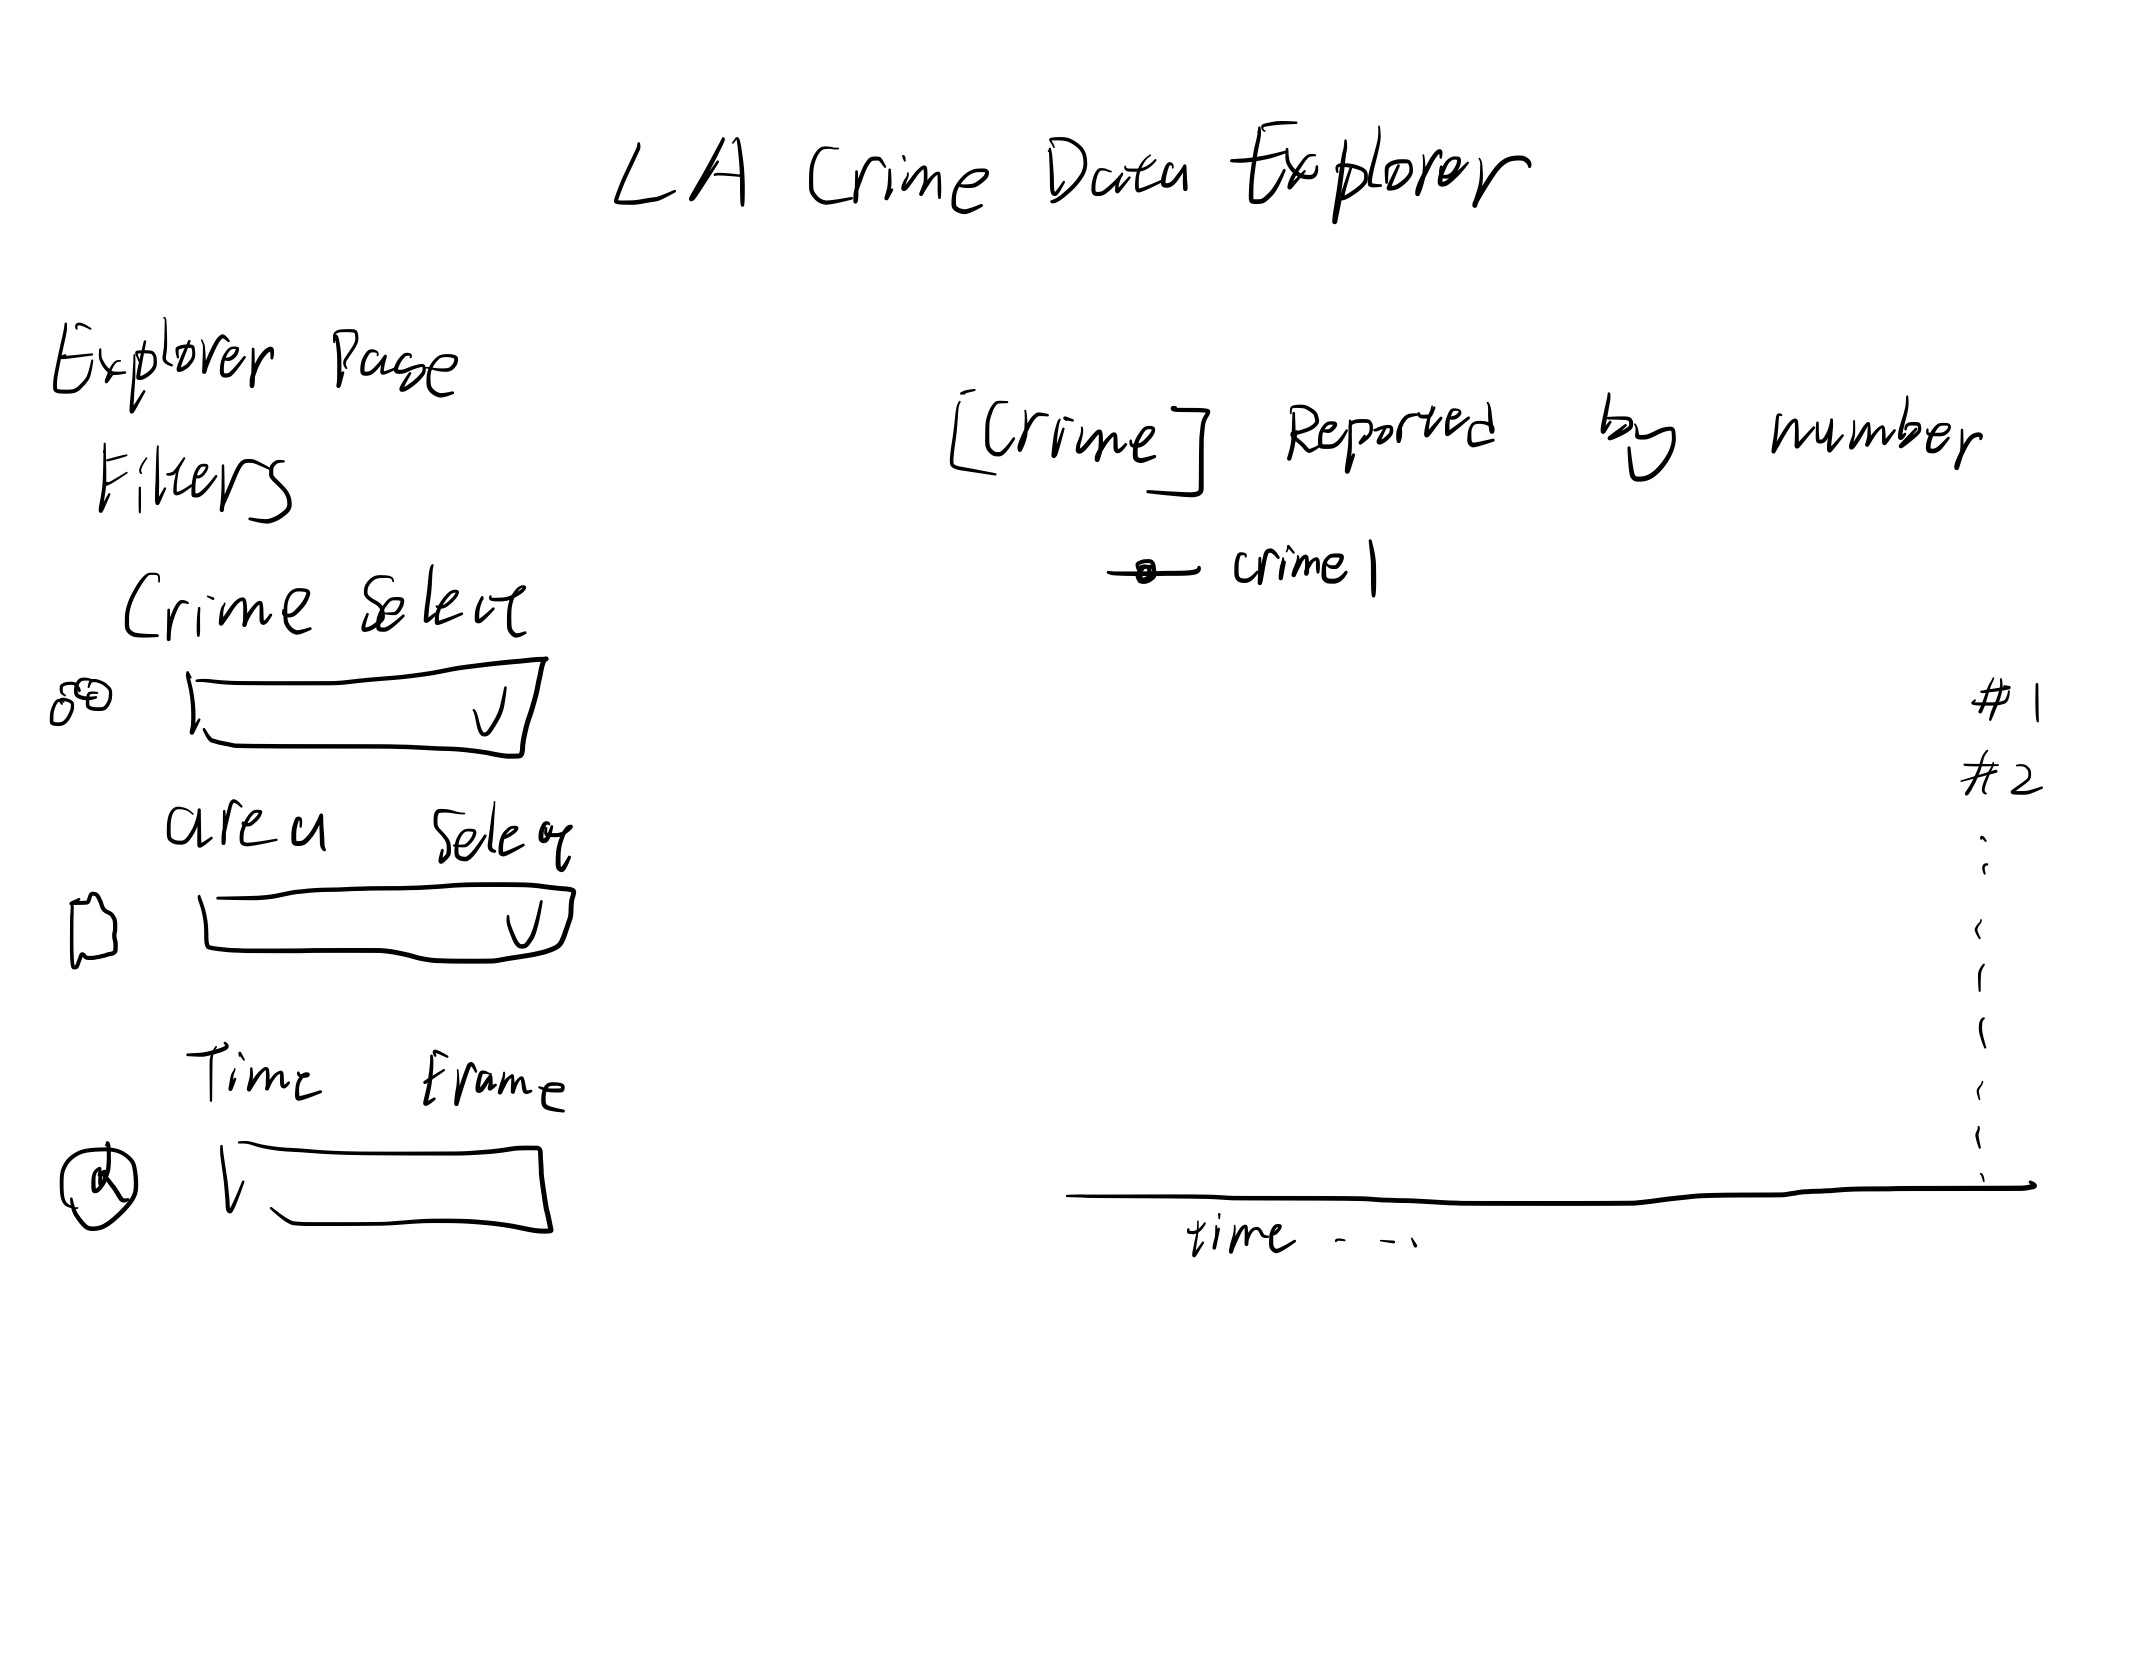 LA Crime Data Explorer
Explorer Page
Filters
Crime Select
area select
Time Frame
[Crime] Reported by number
crime 1
#1
#2
time ----